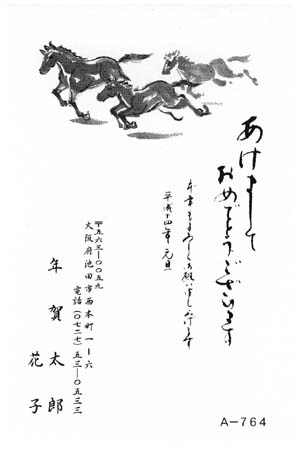 あけまして
おめでとうございます
本年もよろしくお願い申し上げます
平成十四年 元旦
〒五六三-〇〇五九
大阪府池田市西本町一-一六
電話(〇七二七)五三-〇五三三
年賀太郎
花子
A-764